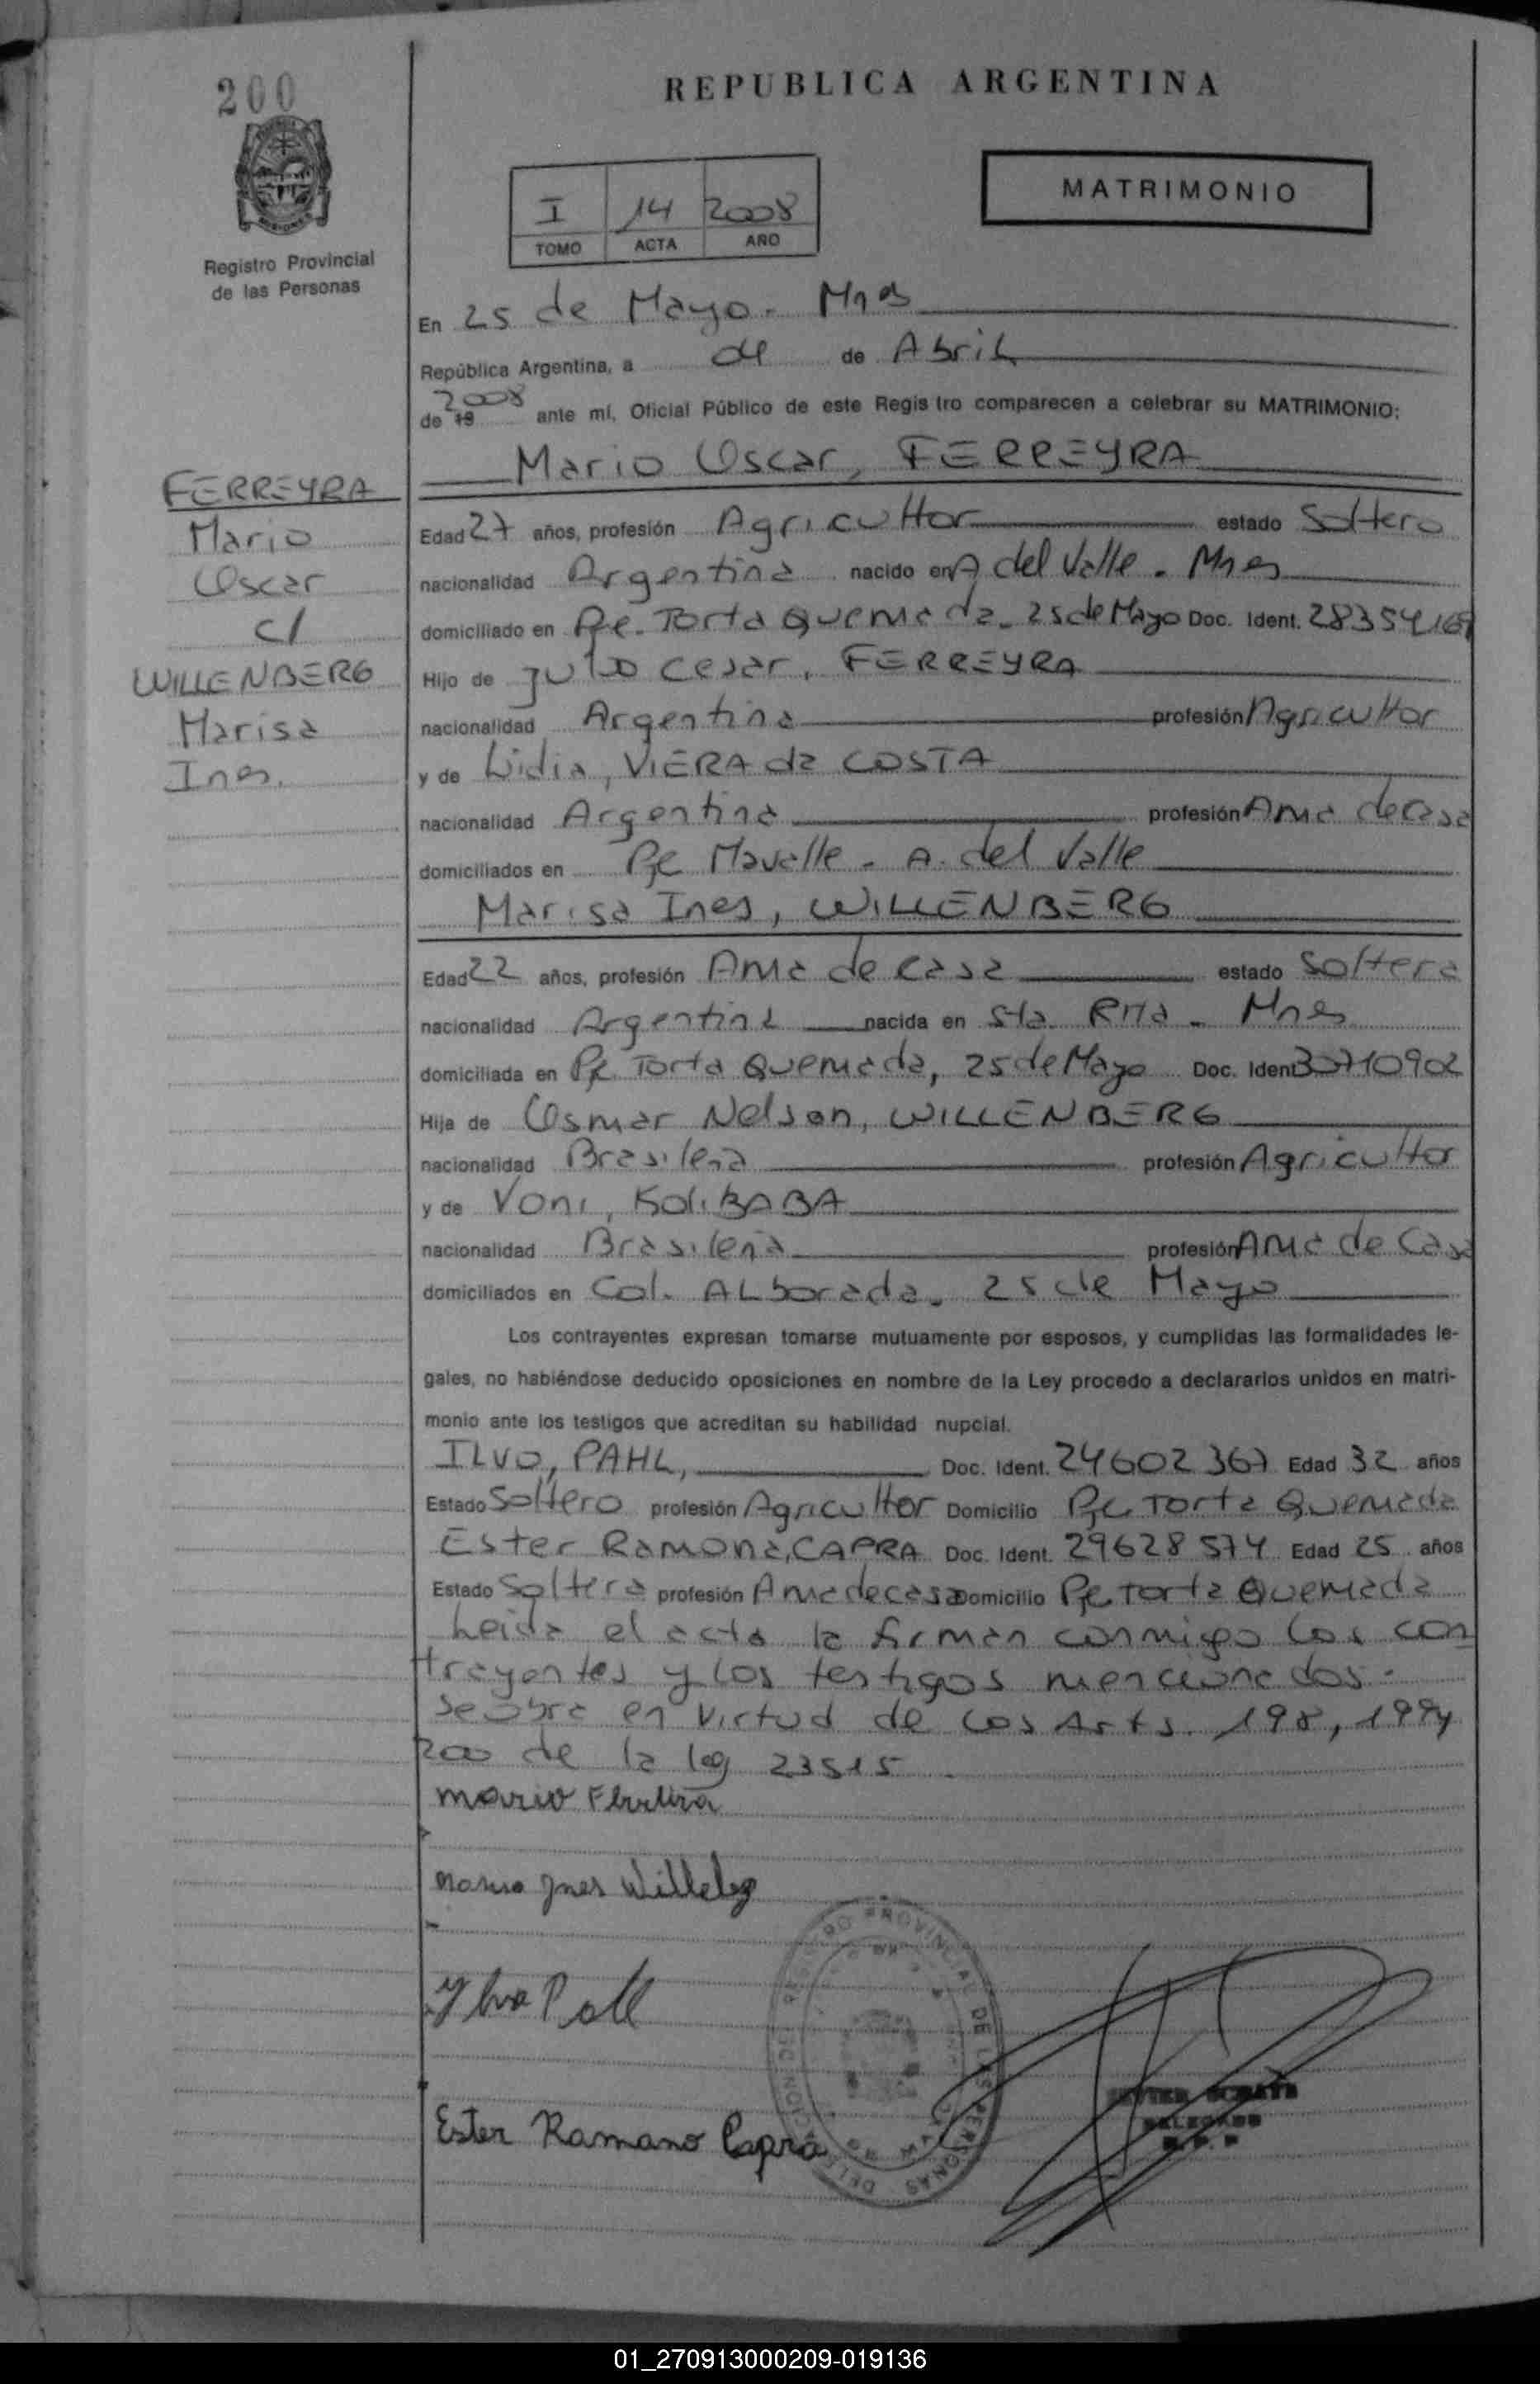 200
REPUBLICA ARGENTINA
I 14 2008
TOMO ACTA AÑO
MATRIMONIO
Registro Provincial
de las Personas
En 25 de Mayo - Mnes
República Argentina, a 04 de Abril
de 19 2008 ante mí, Oficial Público de este Registro comparecen a celebrar su MATRIMONIO:
Mario Oscar, FERREYRA
FERREYRA
Mario
Oscar
c/
WILLENBERG
Marisa
Ines.
Edad 27 años, profesión Agricultor estado Soltero
nacionalidad Argentina nacido en A del Valle - Mnes
domiciliado en Pje. Torta Quemada - 25 de Mayo Doc. Ident. 28354169
Hijo de Julio Cesar, FERREYRA
nacionalidad Argentina profesión Agricultor
y de Lidia, VIERA da COSTA
nacionalidad Argentina profesión Ama de casa
domiciliados en Pje Mavalle - A. del Valle
Marisa Ines, WILLENBERG
Edad 22 años, profesión Ama de casa estado Soltera
nacionalidad Argentina nacida en Sta. Rita - Mnes
domiciliada en Pje Torta Quemada, 25 de Mayo Doc. Ident 30710902
Hija de Osmar Nelson, WILLENBERG
nacionalidad Brasileña profesión Agricultor
y de Voni, KoliBABA
nacionalidad Brasileña profesión Ama de Casa
domiciliados en Col. ALborada - 25 de Mayo
Los contrayentes expresan tomarse mutuamente por esposos, y cumplidas las formalidades le-
gales, no habiéndose deducido oposiciones en nombre de la Ley procedo a declararlos unidos en matri-
monio ante los testigos que acreditan su habilidad nupcial.
ILVO, PAHL, Doc. Ident. 24602367 Edad 32 años
Estado Soltero profesión Agricultor Domicilio Pje Torta Quemada
Ester Ramona, CAPRA Doc. Ident. 29628574 Edad 25 años
Estado Soltera profesión Ama de casa Domicilio Pje Torta Quemada
Leida el acta la firman conmigo los con
trayentes y los testigos mencionados.
Se obra en virtud de los Arts. 198, 199 y
200 de la ley 23515.
Mario Ferreira
Marisa Ines Willeberg
Ylvo Pall
Ester Ramano Capra
REGISTRO PROVINCIAL DE LAS PERSONAS
DELEGADO
01_270913000209-019136